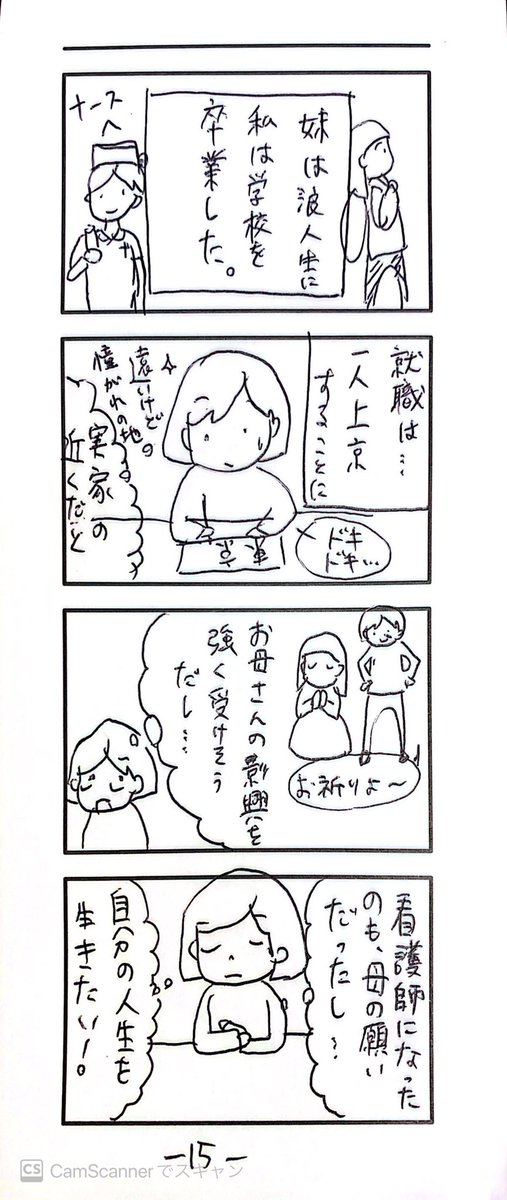 妹は浪人生に
私は学校を
卒業した。
ナース
就職は…
一人上京
することに
ドキ
ドキ…
遠いけど
憧がれの地
実家の
近くだと
お祈りよ〜
お母さんの影興を
強く受けそう
だし…
看護師になった
のも、母の願い
だったし…
自分の人生を
生きたい!。
-15-
CS CamScannerでスキャン